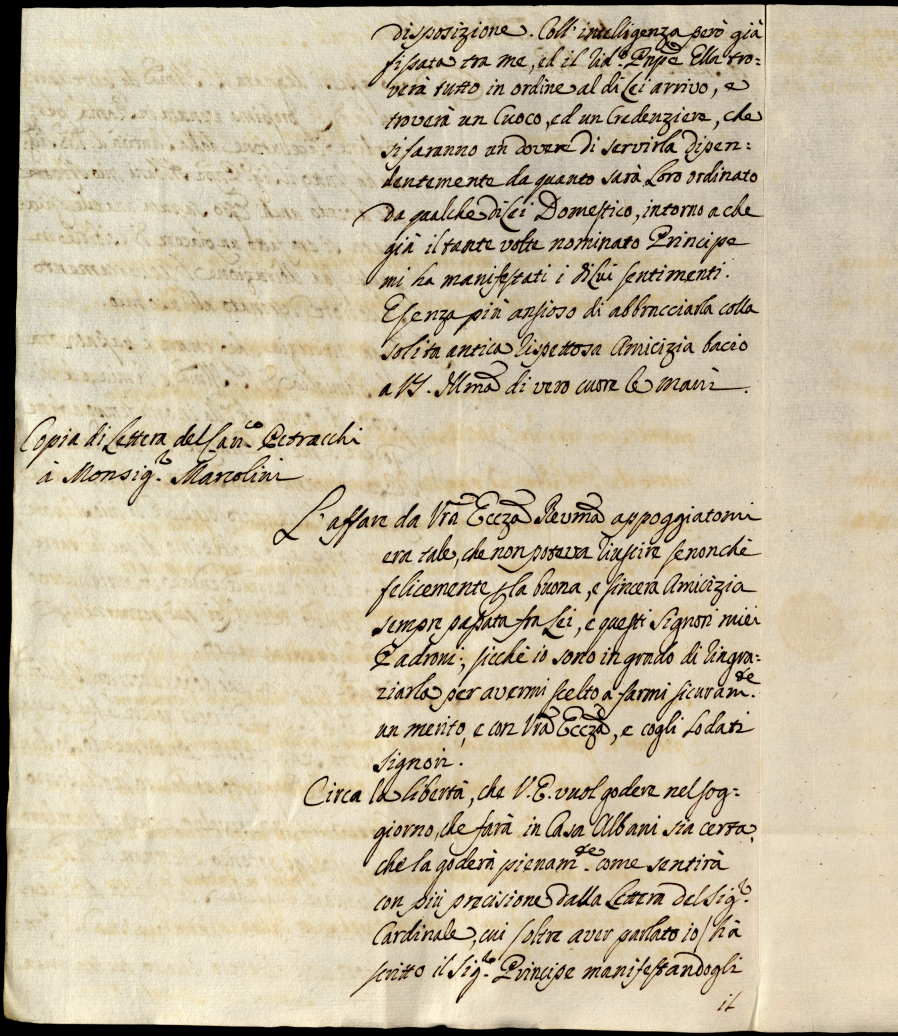 disposizione. Coll'intelligenza però già
fissata tra me, ed il sud.º Pnpe Ella tro=
verà tutto in ordine al di Lei arrivo, e
troverà un Cuoco, ed un Credenziere, che
si faranno un dovere di servirla dipen=
dentemente da quanto sarà Loro ordinato
da qualche di Lei Domestico, intorno a che
già il tante volte nominato Principe
mi ha manifestati i di Lui sentimenti.
E senza più ansioso di abbracciarla colla
solita antica rispettosa Amicizia bacio
a VS. Illma di vero cuore le mani.
Copia di Lettera del Can.co Petracchi
à Monsig.r Marcolini
L'affare da Vra Eccza Revma appoggiatomi
era tale, che non poteva riuscire senonchè
felicemente p la buona, e sincera Amicizia
sempre passata fra Lei, e questi Signori miei
Padroni; sicchè io sono in grado di ringra=
ziarla per avermi scelto a farmi sicuram.te
un merito, e con Vra Eccza, e cogli Lodati
Signori.
Circa la libertà, che V. E. vuol godere nel sog=
giorno, che farà in Casa Albani sia certa,
che la goderà pienam.te come sentirà
con più precisione dalla Lettera del Sig.r
Cardinale, cui (oltre aver parlato io) hà
scritto il Sig.r Principe manifestandogli
il